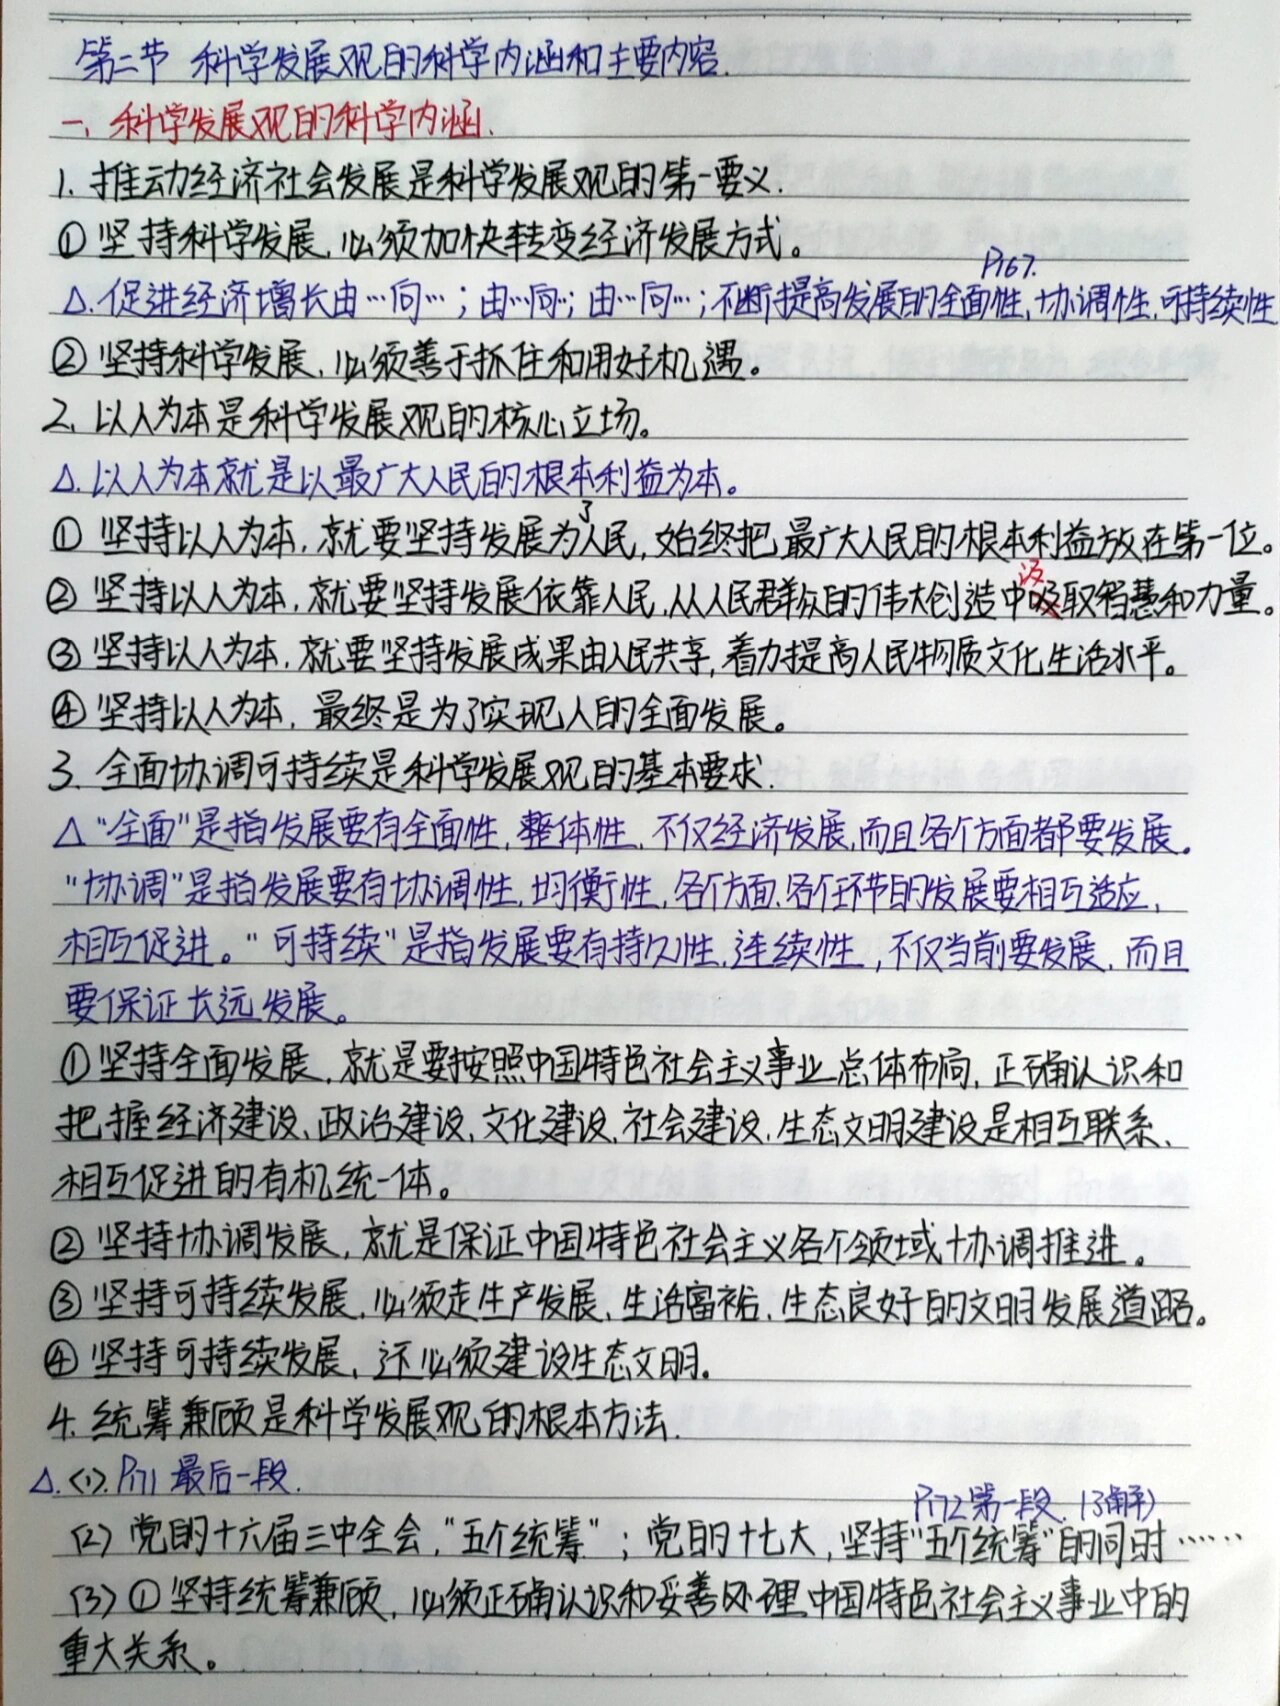 第二节 科学发展观的科学内涵和主要内容.
一、科学发展观的科学内涵.
1. 推动经济社会发展是科学发展观的第一要义.
① 坚持科学发展,必须加快转变经济发展方式。
P167.
△.促进经济增长由…向…;由…向…;由…向…;不断提高发展的全面性,协调性,可持续性
② 坚持科学发展,必须善于抓住和用好机遇。
2. 以人为本是科学发展观的核心立场。
△.以人为本就是以最广大人民的根本利益为本。
① 坚持以人为本,就要坚持发展为了人民,始终把最广大人民的根本利益放在第一位。
② 坚持以人为本,就要坚持发展依靠人民,从人民群众的伟大创造中汲取智慧和力量。
③ 坚持以人为本,就要坚持发展成果由人民共享,着力提高人民物质文化生活水平。
④ 坚持以人为本,最终是为了实现人的全面发展。
3. 全面协调可持续是科学发展观的基本要求.
△“全面”是指发展要有全面性,整体性,不仅经济发展,而且各个方面都要发展。
“协调”是指发展要有协调性,均衡性,各个方面、各个环节的发展要相互适应,
相互促进。“可持续”是指发展要有持久性,连续性,不仅当前要发展,而且
要保证长远发展。
①坚持全面发展,就是要按照中国特色社会主义事业总体布局,正确认识和
把握经济建设、政治建设、文化建设、社会建设、生态文明建设是相互联系、
相互促进的有机统一体。
② 坚持协调发展,就是保证中国特色社会主义各个领域协调推进。
③ 坚持可持续发展,必须走生产发展、生活富裕、生态良好的文明发展道路。
④ 坚持可持续发展,还必须建设生态文明。
4. 统筹兼顾是科学发展观的根本方法.
△.(1).P171 最后一段.
P172第一段.(3解)
(2) 党的十六届三中全会,“五个统筹”;党的十七大,坚持“五个统筹”的同时……
(3) ① 坚持统筹兼顾,必须正确认识和妥善处理中国特色社会主义事业中的
重大关系。